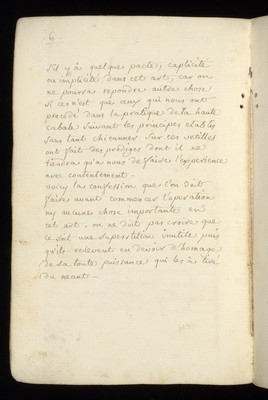 6
s'il y à quelque pacte, explicité
ou implicité dans cet art, car on
ne pourra repondre autre chose
si ce n'est que ceux qui nous ont
precedé dans la pratique de la haute
cabale suivant les principes etablis
sans tant chicanner sur ces vetilles
ont fait des prodiges dont il ne
tiendra qu'a nous de faire l'experience
avec contentement -
voicy la confession que l'on doit
faire avant commencer l'operation
ny aucune chose importante en
cet art. on ne doit pas croire que
ce soit une superstition inutile puis
qu'ils relevent en devoir d'homage
de sa toute puissance qui les à tiré
du neant -